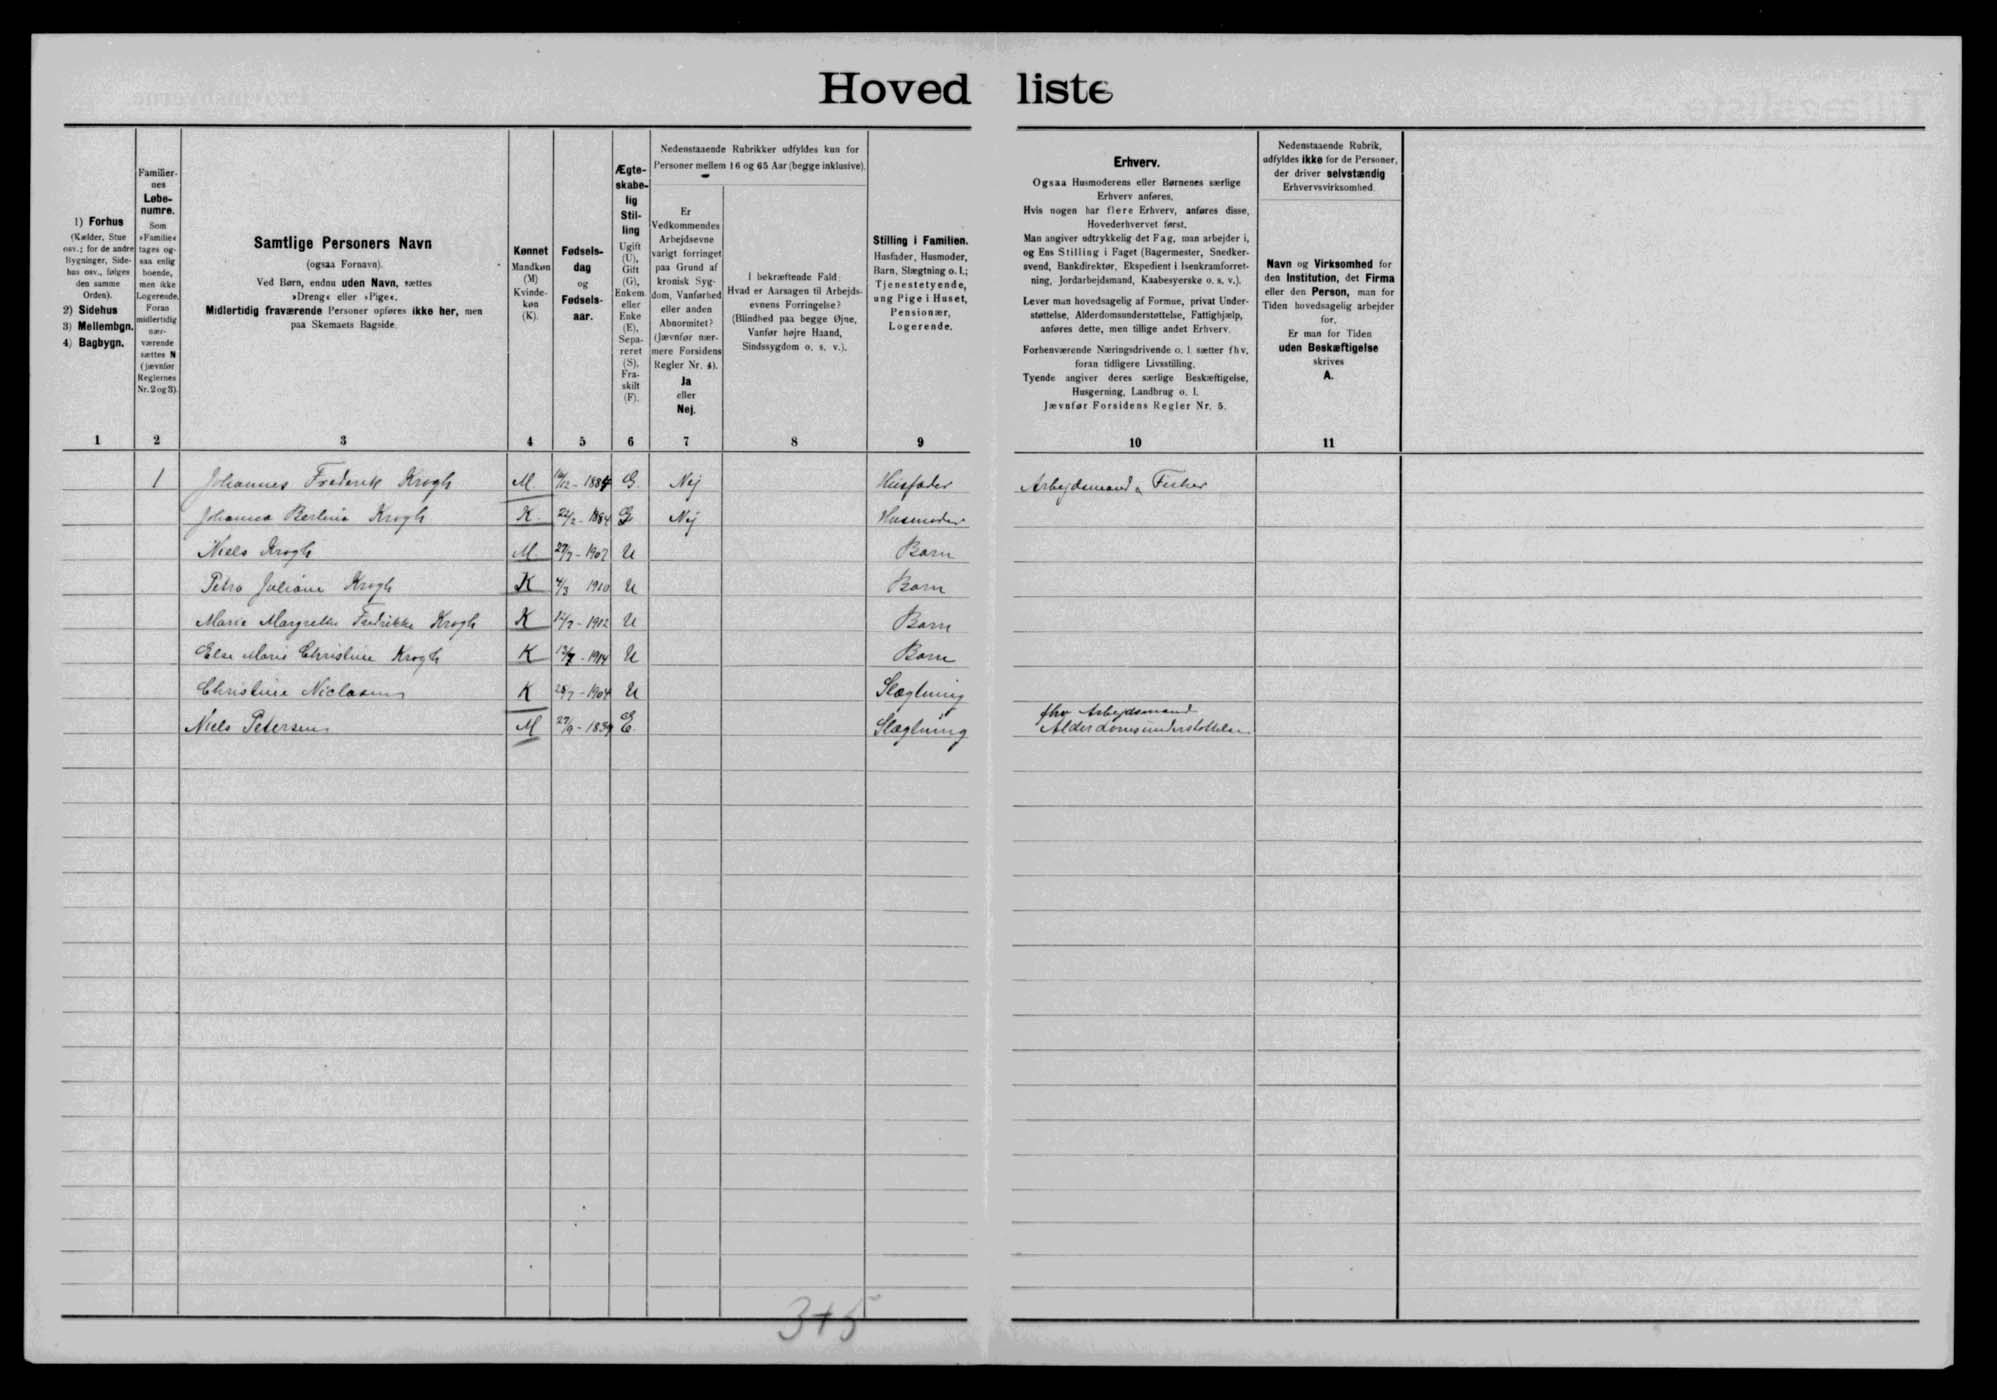 Hovedliste
1) Forhus
(Kælder, Stue
osv.; for de andre
Bygninger, Side-
hus osv., følges
den samme
Orden).
2) Sidehus
3) Mellembgn.
4) Bagbygn.
Familier-
nes
Løbe-
numre.
Som
»Familie«
tages og-
saa enlig
boende,
men ikke
Logerende.
Foran
midlertidig
nær-
værende
sættes N
(jævnfør
Reglernes
Nr. 2 og 3).
Samtlige Personers Navn
(ogsaa Fornavn).
Ved Børn, endnu uden Navn, sættes
»Dreng« eller »Pige«.
Midlertidig fraværende Personer opføres ikke her, men
paa Skemaets Bagside.
Kønnet
Mandkøn
(M)
Kvinde-
køn
(K).
Fødsels-
dag
og
Fødsels-
aar.
Ægte-
skabe-
lig
Stil-
ling
Ugift
(U),
Gift
(G),
Enkem.
eller
Enke
(E),
Sepa-
reret
(S),
Fra-
skilt
(F).
Nedenstaaende Rubrikker udfyldes kun for
Personer mellem 16 og 65 Aar (begge inklusive).
Er
Vedkommendes
Arbejdsevne
varigt forringet
paa Grund af
kronisk Syg-
dom, Vanførhed
eller anden
Abnormitet?
(Jævnfør nær-
mere Forsidens
Regler Nr. 4).
Ja
eller
Nej.
I bekræftende Fald:
Hvad er Aarsagen til Arbejds-
evnens Forringelse?
(Blindhed paa begge Øjne,
Vanfør højre Haand,
Sindssygdom o. s. v.).
Stilling i Familien.
Husfader, Husmoder,
Barn, Slægtning o. l.;
Tjenestetyende,
ung Pige i Huset,
Pensionær,
Logerende.
Erhverv.
Ogsaa Husmoderens eller Børnenes særlige
Erhverv anføres.
Hvis nogen har flere Erhverv, anføres disse,
Hovederhvervet først.
Man angiver udtrykkelig det Fag, man arbejder i,
og Ens Stilling i Faget (Bagermester, Snedker-
svend, Bankdirektør, Ekspedient i Isenkramforret-
ning, Jordarbejdsmand, Kaabesyerske o. s. v.).
Lever man hovedsagelig af Formue, privat Under-
støttelse, Alderdomsunderstøttelse, Fattighjælp,
anføres dette, men tillige andet Erhverv.
Forhenværende Næringsdrivende o. l. sætter fhv.
foran tidligere Livsstilling.
Tyende angiver deres særlige Beskæftigelse,
Husgerning, Landbrug o. l.
Jævnfør Forsidens Regler Nr. 5.
Nedenstaaende Rubrik,
udfyldes ikke for de Personer,
der driver selvstændig
Erhvervsvirksomhed.
Navn og Virksomhed for
den Institution, det Firma
eller den Person, man for
Tiden hovedsagelig arbejder
for.
Er man for Tiden
uden Beskæftigelse
skrives
A.
1 2 3 4 5 6 7 8 9 10 11
1 Johannes Frederik Krogh M. 1884 G. Nej Husfader Arbejdsmand & Fisker
Johanna Bertine Krogh K. 22/2 - 1884 G Nej Husmoder
Niels Krogh M. 27/7 - 1907 U Barn
Petra Juliane Krogh K 4/3 1910 U Barn
Marie Margrethe Fredrikke Krogh K 1912 U Barn
Else Marie Christine Krogh K 1914 U Barn
Christine Niclasen K 28/7 - 1904 U Slægtning
Niels Petersen M 27/9 - 1839 E Slægtning fhv Arbejdsmand
Alderdomsunderstøttelse
3+5